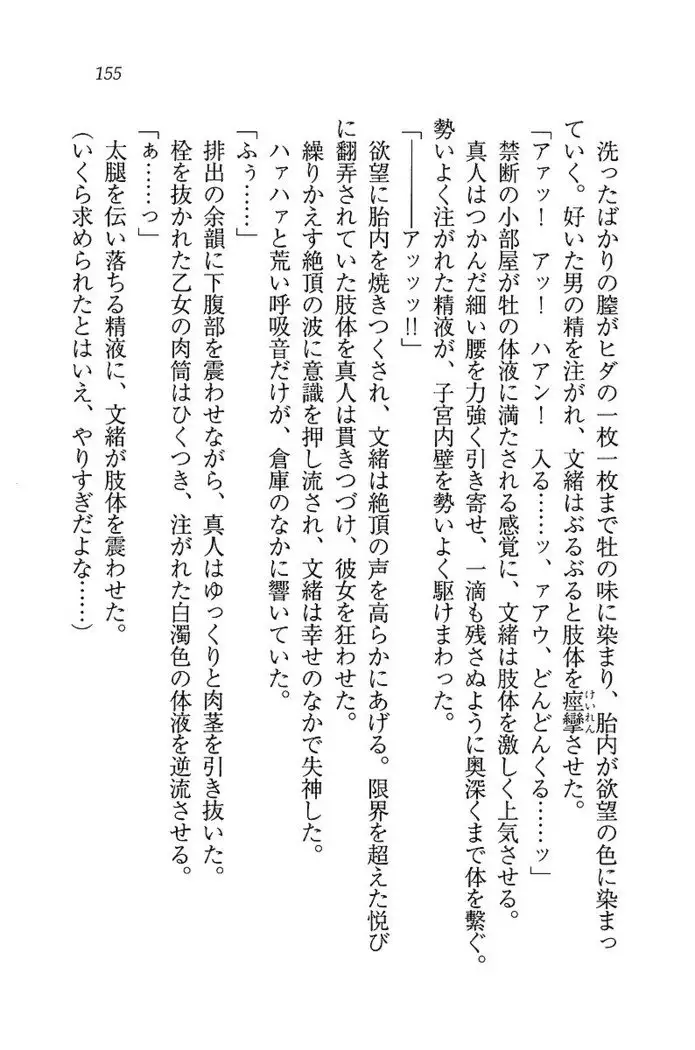 155
洗ったばかりの膣がヒダの一枚一枚まで牡の味に染まり、胎内が欲望の色に染まっ
ていく。好いた男の精を注がれ、文緒はぶるぶると肢体を痙攣させた。
けいれん
「アァッ！　アッ！　ハアン！　入る……ッ、ァアウ、どんどんくる……ッ」
禁断の小部屋が牡の体液に満たされる感覚に、文緒は肢体を激しく上気させる。
真人はつかんだ細い腰を力強く引き寄せ、一滴も残さぬように奥深くまで体を繋ぐ。
勢いよく注がれた精液が、子宮内壁を勢いよく駆けまわった。
「――――アッッッ!!」
欲望に胎内を焼きつくされ、文緒は絶頂の声を高らかにあげる。限界を超えた悦び
に翻弄されていた肢体を真人は貫きつづけ、彼女を狂わせた。
繰りかえす絶頂の波に意識を押し流され、文緒は幸せのなかで失神した。
ハァハァと荒い呼吸音だけが、倉庫のなかに響いていた。
「ふぅ……」
排出の余韻に下腹部を震わせながら、真人はゆっくりと肉茎を引き抜いた。
栓を抜かれた乙女の肉筒はひくつき、注がれた白濁色の体液を逆流させる。
「ぁ……っ」
太腿を伝い落ちる精液に、文緒が肢体を震わせた。
（いくら求められたとはいえ、やりすぎだよな……）